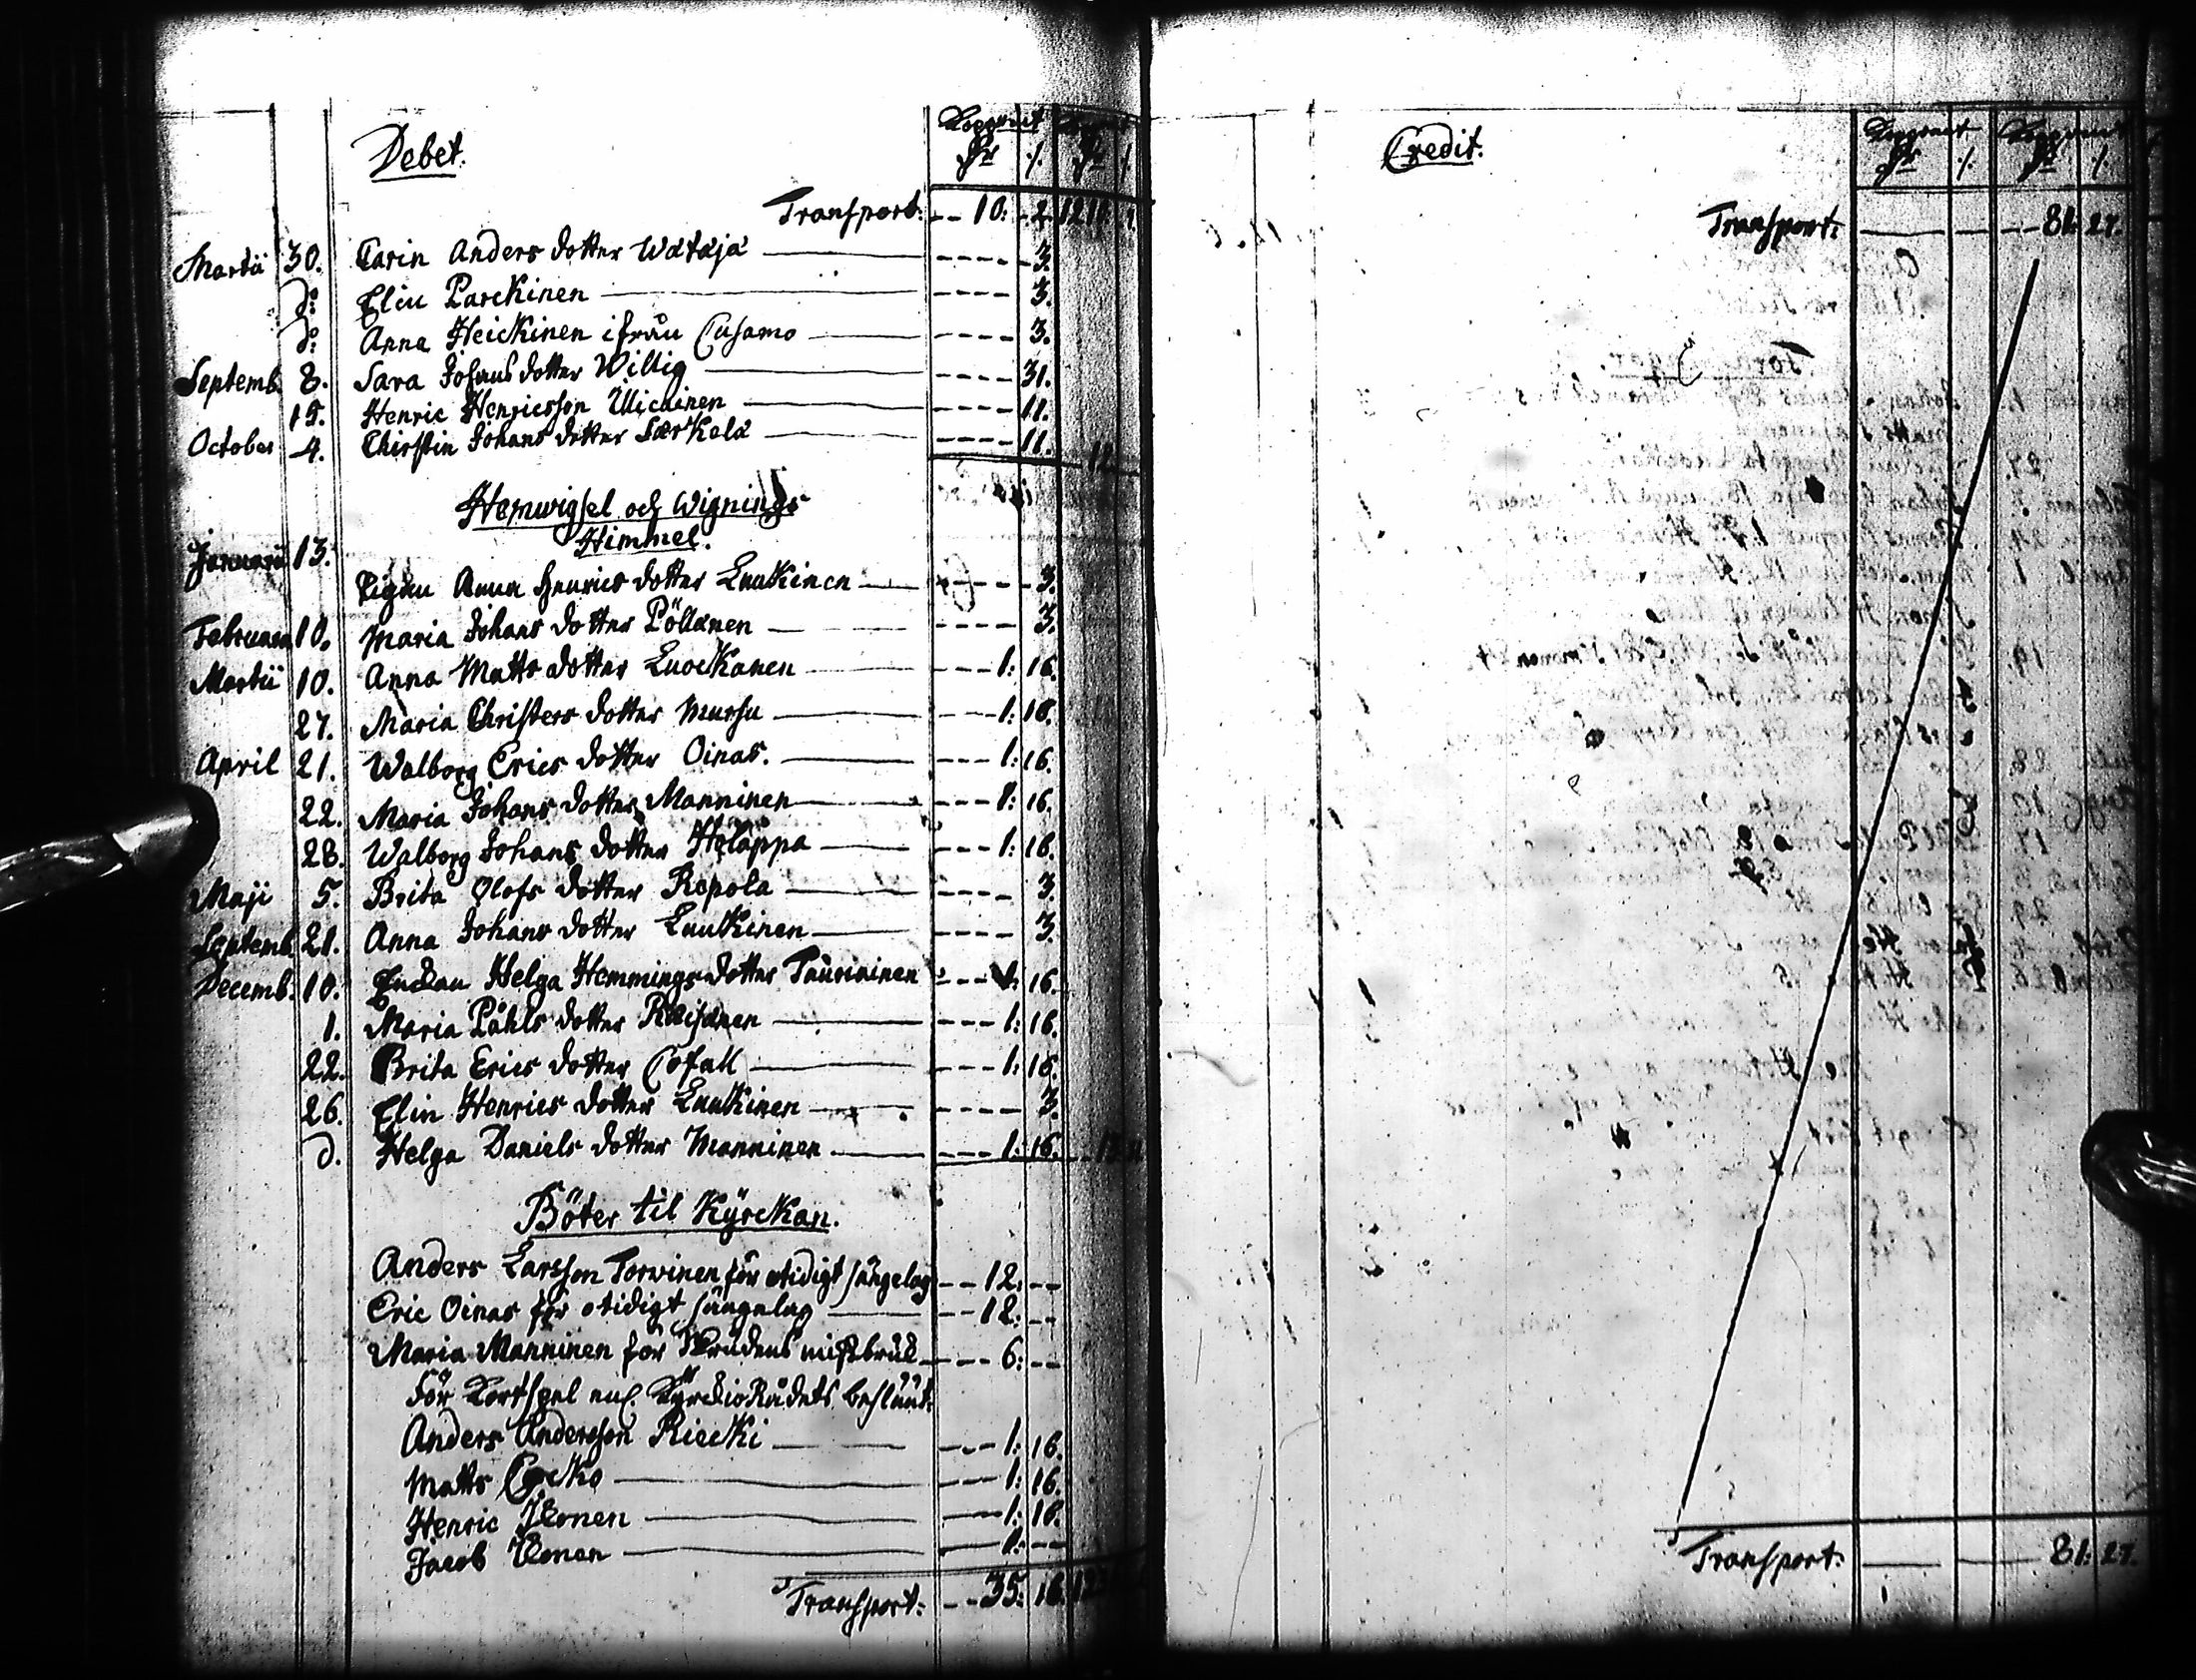 Debet.
Transport: 10: 2.
Martii 30. Carin Anders dotter Wataja 3.
do Elin Parckinen 3.
do Anna Heickinen ifrån Cusamo 3.
Septemb. 8. Sara Johans dotter Willig 31.
15. Henric Henricsson 11.
October 4. Chirstin Johans dotter Særkelä 11.
Hemwigsel och Wignings
Himmel.
Januarii 13. Pigan Anna Henrics dotter Luukinen 3.
Februarii 10. Maria Johans dotter Pöllänen 3.
Martii 10. Anna Matts dotter Luockanen 1: 16.
27. Maria Christers dotter Mursu 1: 16.
April 21. Walborg Erics dotter Oinas. 1: 16.
22. Maria Johans dotter Manninen 1: 16.
28. Walborg Johans dotter Holappa 1: 16.
Maji 5. Brita Olofs dotter Repola 3.
Septemb. 21. Anna Johans dotter Luukinen 3.
Decemb. 10. Enckan Helga Hemmings dotter Tauriainen 1: 16.
1. Maria Påhls dotter Räisänen 1: 16.
22. Brita Erics dotter 1: 16.
26. Elin Henrics dotter Luukinen 3.
d. Helga Daniels dotter Manninen 1: 16.
Böter til Kyrckan.
Anders Larsson Torvinen för otidigt sängelag 12:
Eric Oinas för otidigt sängelag 12:
Maria Manninen för Skrudens missbruk 6:
För Kortspel enl. Kyrckio Rådets beslut:
Anders Andersson Riecki 1: 16.
Matts 1: 16.
Henric Ikonen 1: 16.
Jacob Ikonen 1:
Transport: 35: 16.
Credit.
Transport: 81: 27.
Transport: 81: 27.